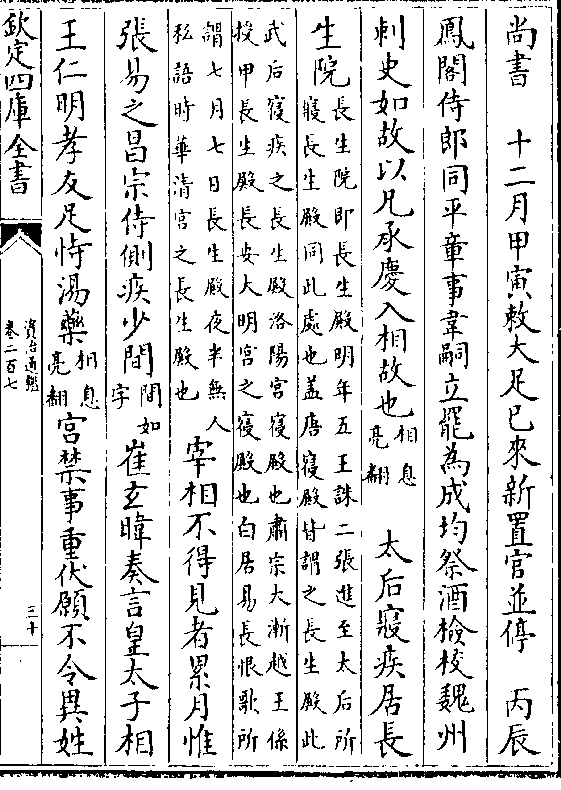 尚書　十二月甲寅敕大足已來新置官並停　丙辰
鳳閣侍郎同平章事韋嗣立罷為成均祭酒檢校魏州
刺史如故以兄承慶入相故也相息亮翻　太后寢疾居長
生院長生院即長生殿明年五王誅二張進至太后所寢長生殿同此處也蓋唐寢殿皆謂之長生殿此
武后寢疾之長生殿洛陽宮寢殿也肅宗大漸越王係授甲長生殿長安大明宮之寢殿也白居易長恨歌所
謂七月七日長生殿夜半無人私語時華清宮之長生殿也宰相不得見者累月惟
張易之昌宗侍側疾少間間如字崔玄暐奏言皇太子相
王仁明孝友足恃湯藥相息亮翻宮禁事重伏願不令異姓
欽定四庫全書
資治通鑑
卷二百七
三十